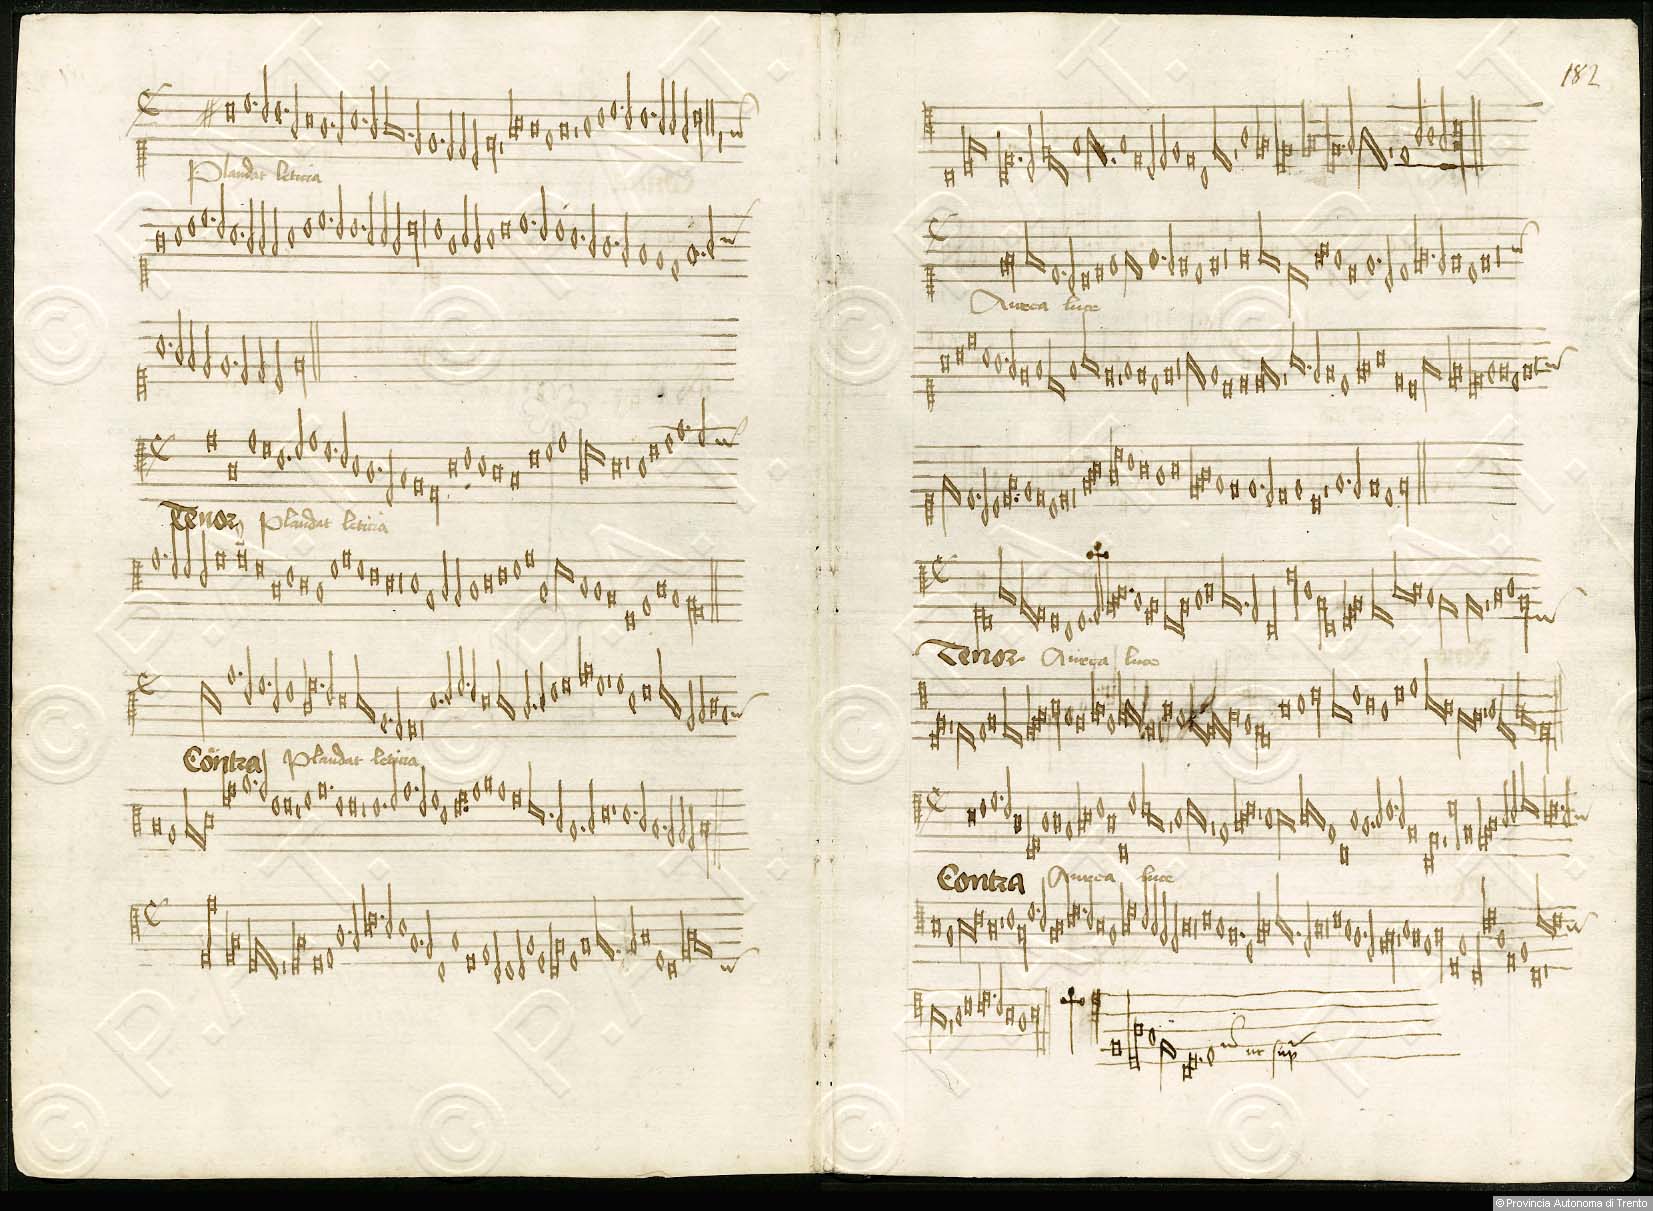 Plaudat leticia
Tenor Plaudat leticia
Contra Plaudat leticia
182
Aurea luce
Tenor Aurea luce
Contra Aurea luce
ut sup
© Provincia Autonoma di Trento